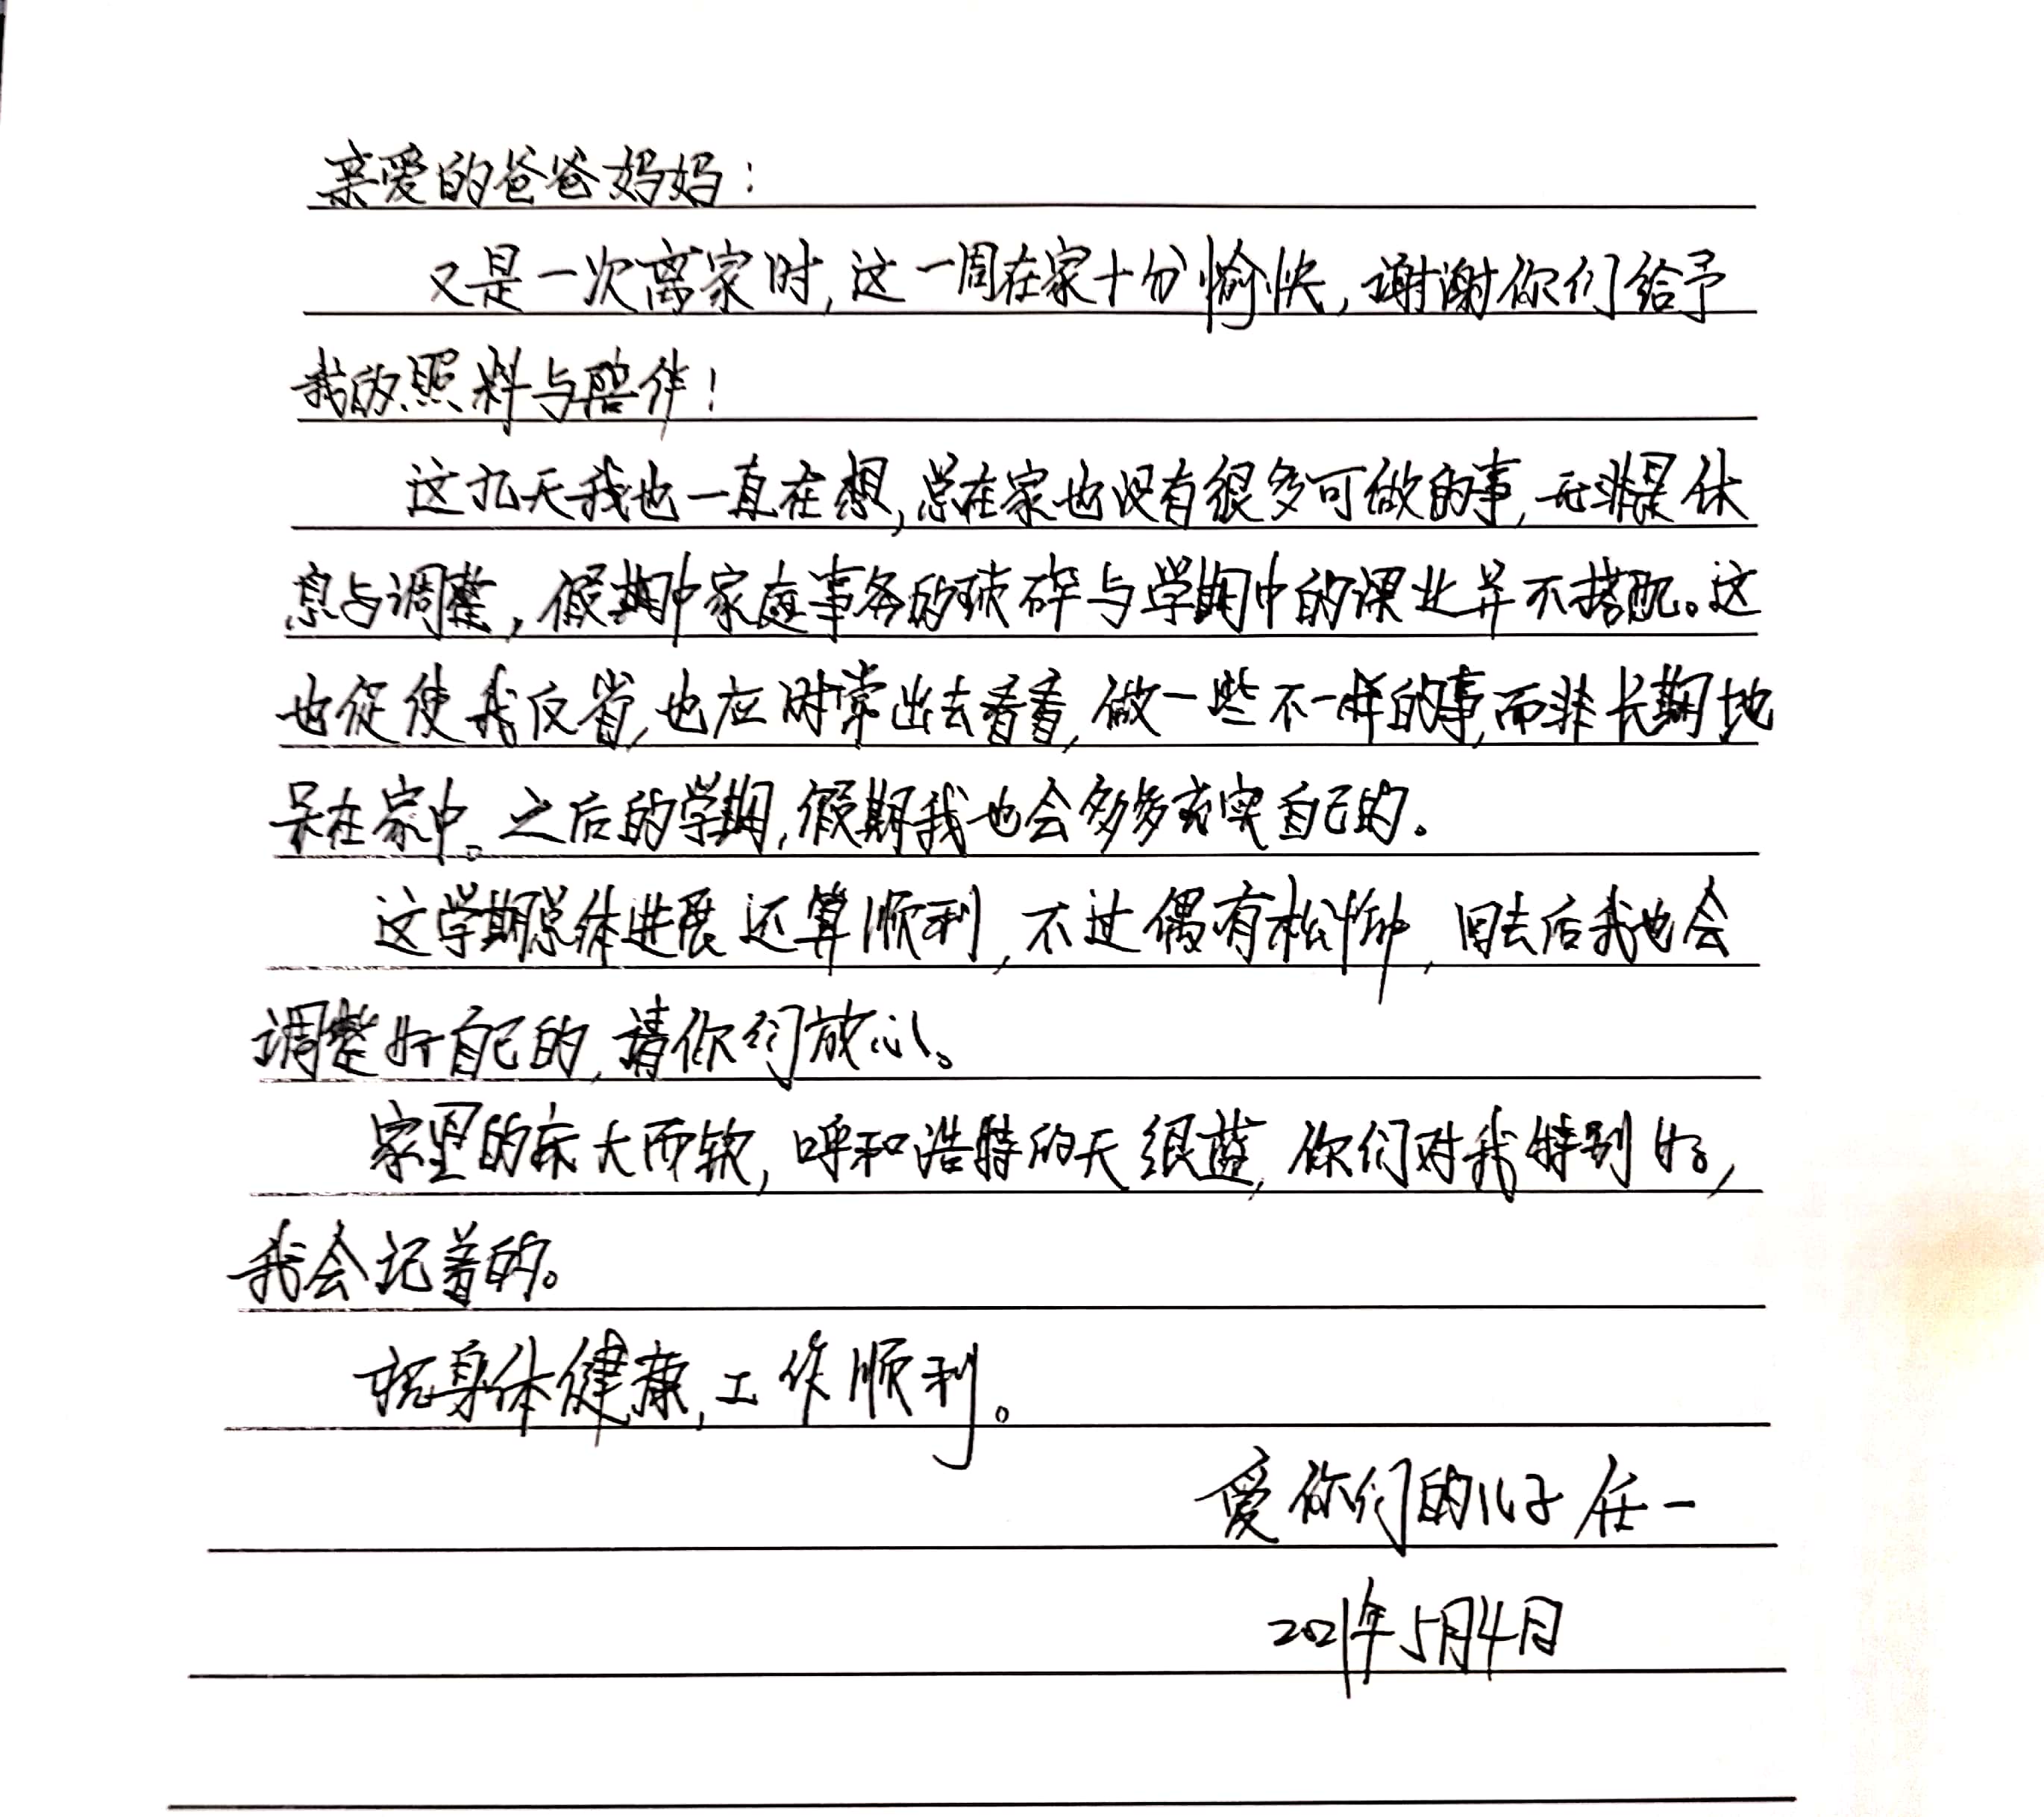 亲爱的爸爸妈妈：
又是一次离家时,这一周在家十分愉快,谢谢你们给予
我的照料与陪伴!
这几天我也一直在想,总在家也没有很多可做的事,无非是休
息与调整,假期中家庭事务的琐碎与学期中的课业并不搭配。这
也促使我反省,也应时常出去看看,做一些不一样的事,而非长期地
呆在家中。之后的学期,假期我也会多多充实自己的。
这学期总体进展还算顺利,不过偶有松懈,回去后我也会
调整好自己的,请你们放心。
家里的床大而软,呼和浩特的天很蓝,你们对我特别好,
我会记着的。
祝身体健康,工作顺利。
爱你们的儿子 任一
2021年5月4日